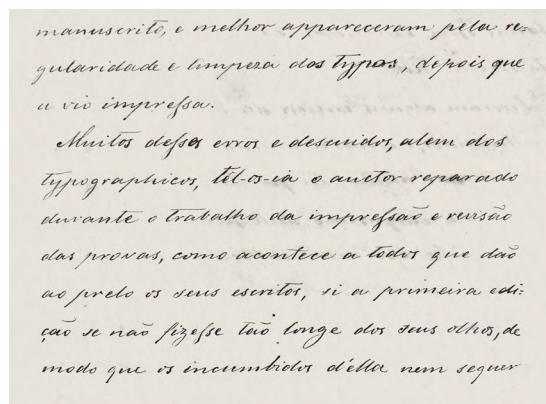 manuscrito, e melhor appareceram pela re=
gularidade e limpeza dos typos, depois que
a vio impressa.
Muitos desses erros e descuidos, alem dos
typographicos, têl-os-ia o auctor reparado
durante o trabalho da impressão e revisão
das provas, como acontece a todos que dão
ao prelo os seus escritos, si a primeira edi=
ção se não fizesse tão longe dos seus olhos, de
modo que os incumbidos d'élla nem sequer